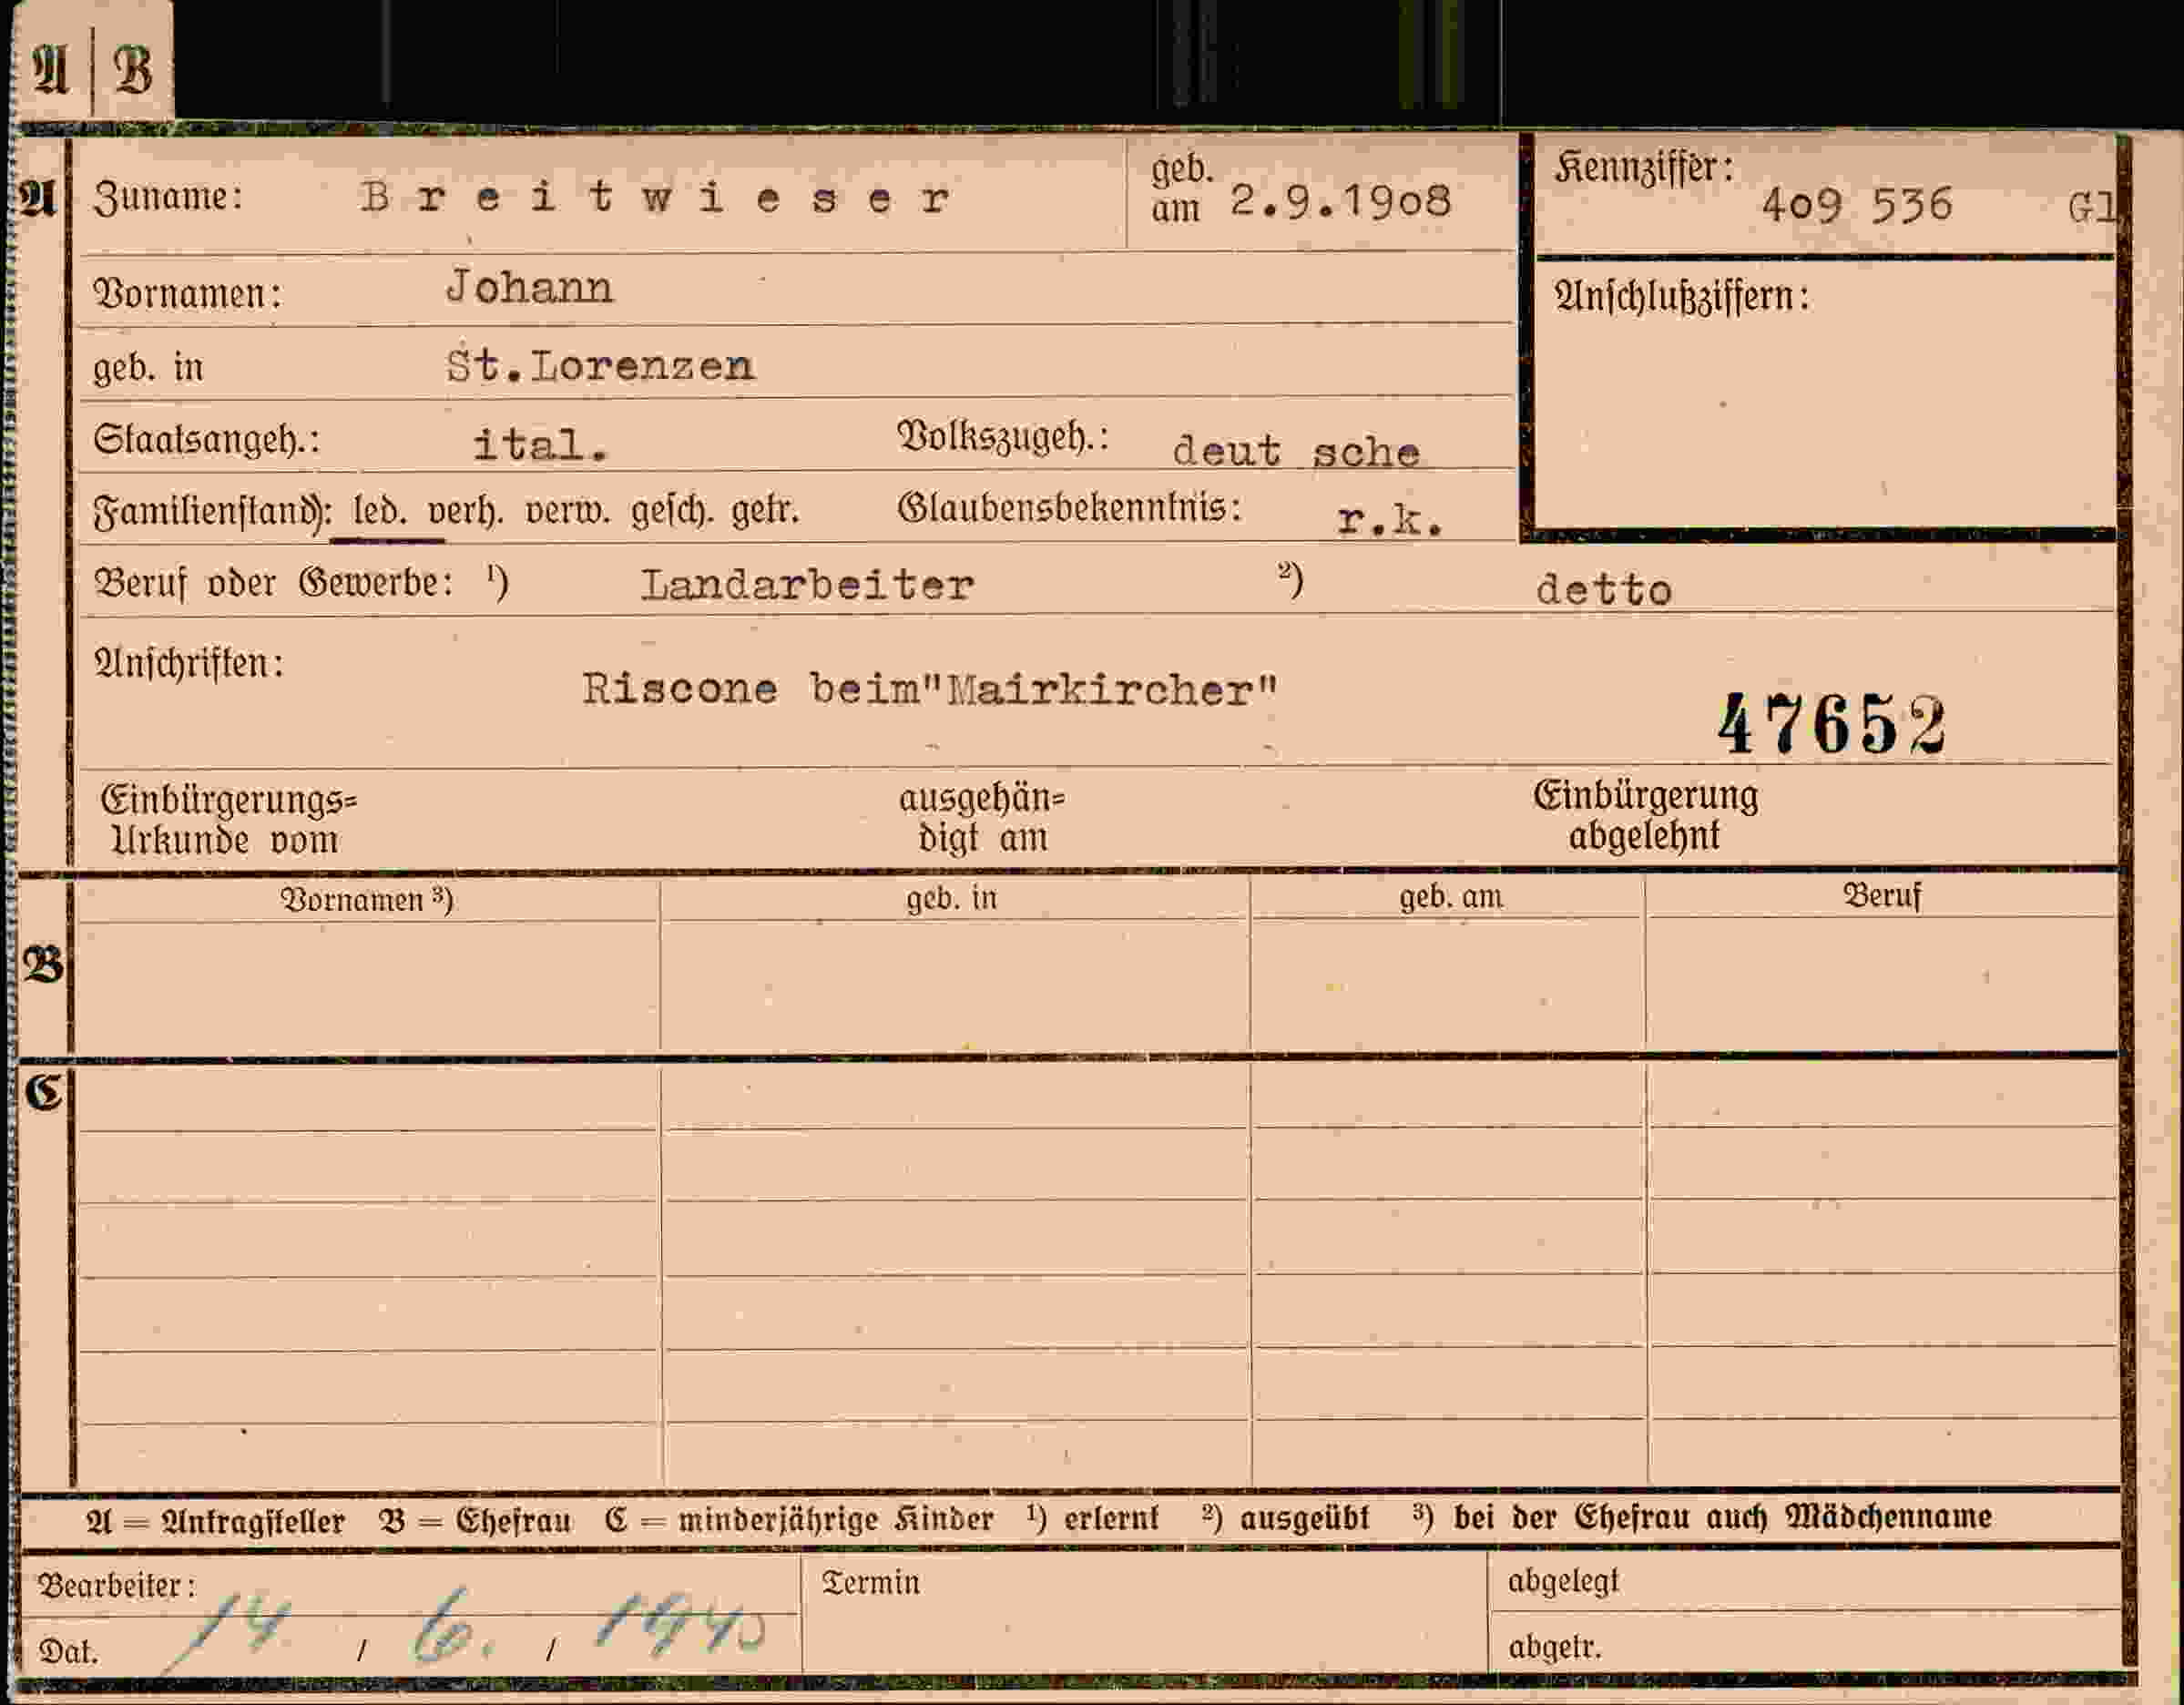 A | B
A Zuname: Breitwieser geb. am 2.9.1908 Kennziffer: 409 536 Gl
Vornamen: Johann Anschlußziffern:
geb. in St.Lorenzen
Staatsangeh.: ital. Volkszugeh.: deut sche
Familienstand): led. verh. verw. gesch. getr. Glaubensbekenntnis: r.k.
Beruf oder Gewerbe: ¹) Landarbeiter ²) detto
Anschriften: Riscone beim"Mairkircher"
47652
Einbürgerungs= ausgehän= Einbürgerung
Urkunde vom digt am abgelehnt
Vornamen ³) geb. in geb. am Beruf
B
C
A = Antragsteller B = Ehefrau C = minderjährige Kinder ¹) erlernt ²) ausgeübt ³) bei der Ehefrau auch Mädchenname
Bearbeiter: Termin abgelegt
Dat. 14 / 6. / 1940 abgetr.